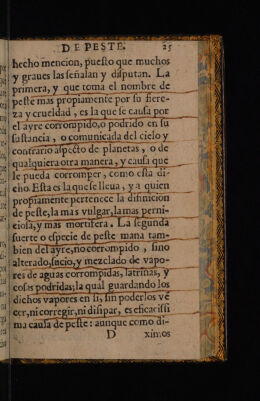 DE PESTE. 25
hecho mencion, puesto que muchos
y graues las señalan y disputan. La
primera, y que toma el nombre de
peste mas propiamente por su fiere-
za y crueldad, es la que se causa por
el ayre corrompido, o podrido en su
sustancia, o comunicada del cielo y
contrario aspecto de planetas, o de
qualquiera otra manera, y causa que
le pueda corromper, como està di-
cho. Esta es la que se lleua, y a quien
propiamente pertenece la difinicion
de peste, la mas vulgar, la mas perni-
ciosa, y mas mortifera. La segunda
suerte o especie de peste mana tam-
bien del ayre, no corrompido, sino
alterado, sucio, y mezclado de vapo-
res de aguas corrompidas, latrinas, y
cosas podridas; la qual guardando los
dichos vapores en si, sin poderlos vẽ
cer, ni corregir, ni disipar, es eficacissi
ma causa de peste: aunque como di-
D ximos